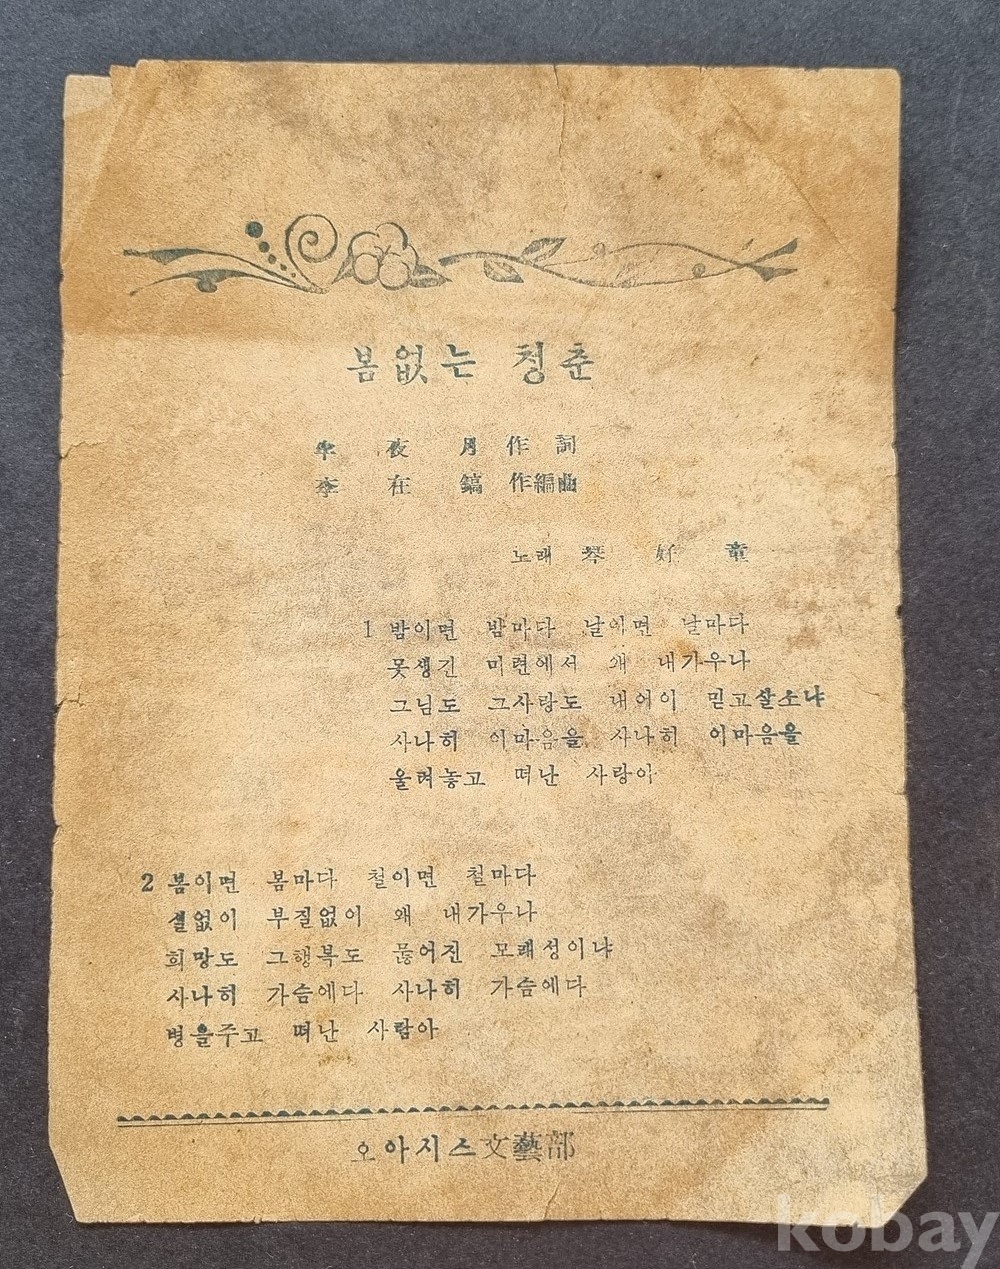 봄없는 청춘
半 夜 月 作 詞
李 在 鎬 作編曲
노래 琴 好 童
1 밤이면 밤마다 날이면 날마다
못생긴 미련에서 왜 내가우나
그님도 그사랑도 내어이 믿고살소냐
사나히 이마음을 사나히 이마음을
울려놓고 떠난 사랑아
2 봄이면 봄마다 철이면 철마다
실없이 부질없이 왜 내가우나
희망도 그행복도 뭃어진 모래성이냐
사나히 가슴에다 사나히 가슴에다
병을주고 떠난 사람아
오아시스文藝部
kobay